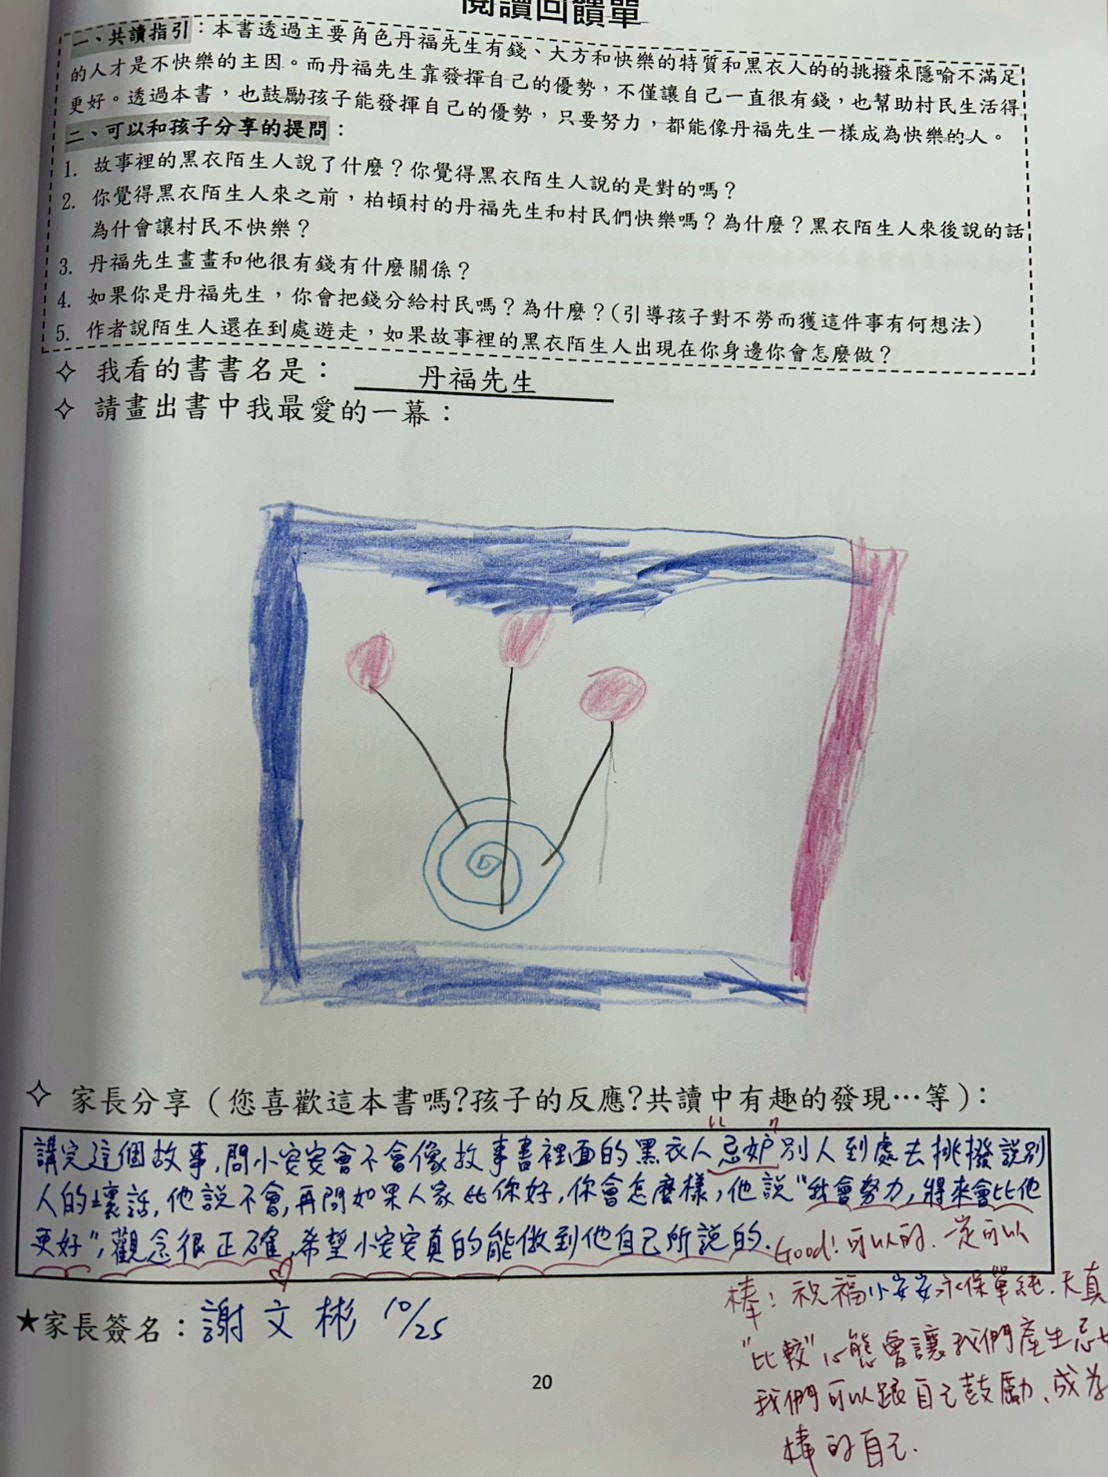 閱讀回饋單
一、共讀指引：本書透過主要角色丹福先生有錢、大方和快樂的特質和黑衣人的的挑撥來隱喻不滿足
的人才是不快樂的主因。而丹福先生靠發揮自己的優勢，不僅讓自己一直很有錢，也幫助村民生活得
更好。透過本書，也鼓勵孩子能發揮自己的優勢，只要努力，都能像丹福先生一樣成為快樂的人。
二、可以和孩子分享的提問：
1. 故事裡的黑衣陌生人說了什麼？你覺得黑衣陌生人說的是對的嗎？
2. 你覺得黑衣陌生人來之前，柏頓村的丹福先生和村民們快樂嗎？為什麼？黑衣陌生人來後說的話
為什會讓村民不快樂？
3. 丹福先生畫畫和他很有錢有什麼關係？
4. 如果你是丹福先生，你會把錢分給村民嗎？為什麼？(引導孩子對不勞而獲這件事有何想法)
5. 作者說陌生人還在到處遊走，如果故事裡的黑衣陌生人出現在你身邊你會怎麼做？
✧ 我看的書書名是： 丹福先生
✧ 請畫出書中我最愛的一幕：
✧ 家長分享（您喜歡這本書嗎?孩子的反應?共讀中有趣的發現…等）：
講完這個故事,問小安安會不會像故事書裡面的黑衣人"忌妒"別人到處去挑撥說別
人的壞話,他說不會,再問如果人家比你好,你會怎麼樣,他說"我會努力,將來會比他
更好",觀念很正確,希望小安安真的能做到他自己所說的.
Good! 可以的.一定可以
★家長簽名：謝文彬 10/25
棒！祝福小安安永保單純.天真
"比較"心態會讓我們產生忌
我們可以跟自己鼓勵、成為
棒的自己.
20